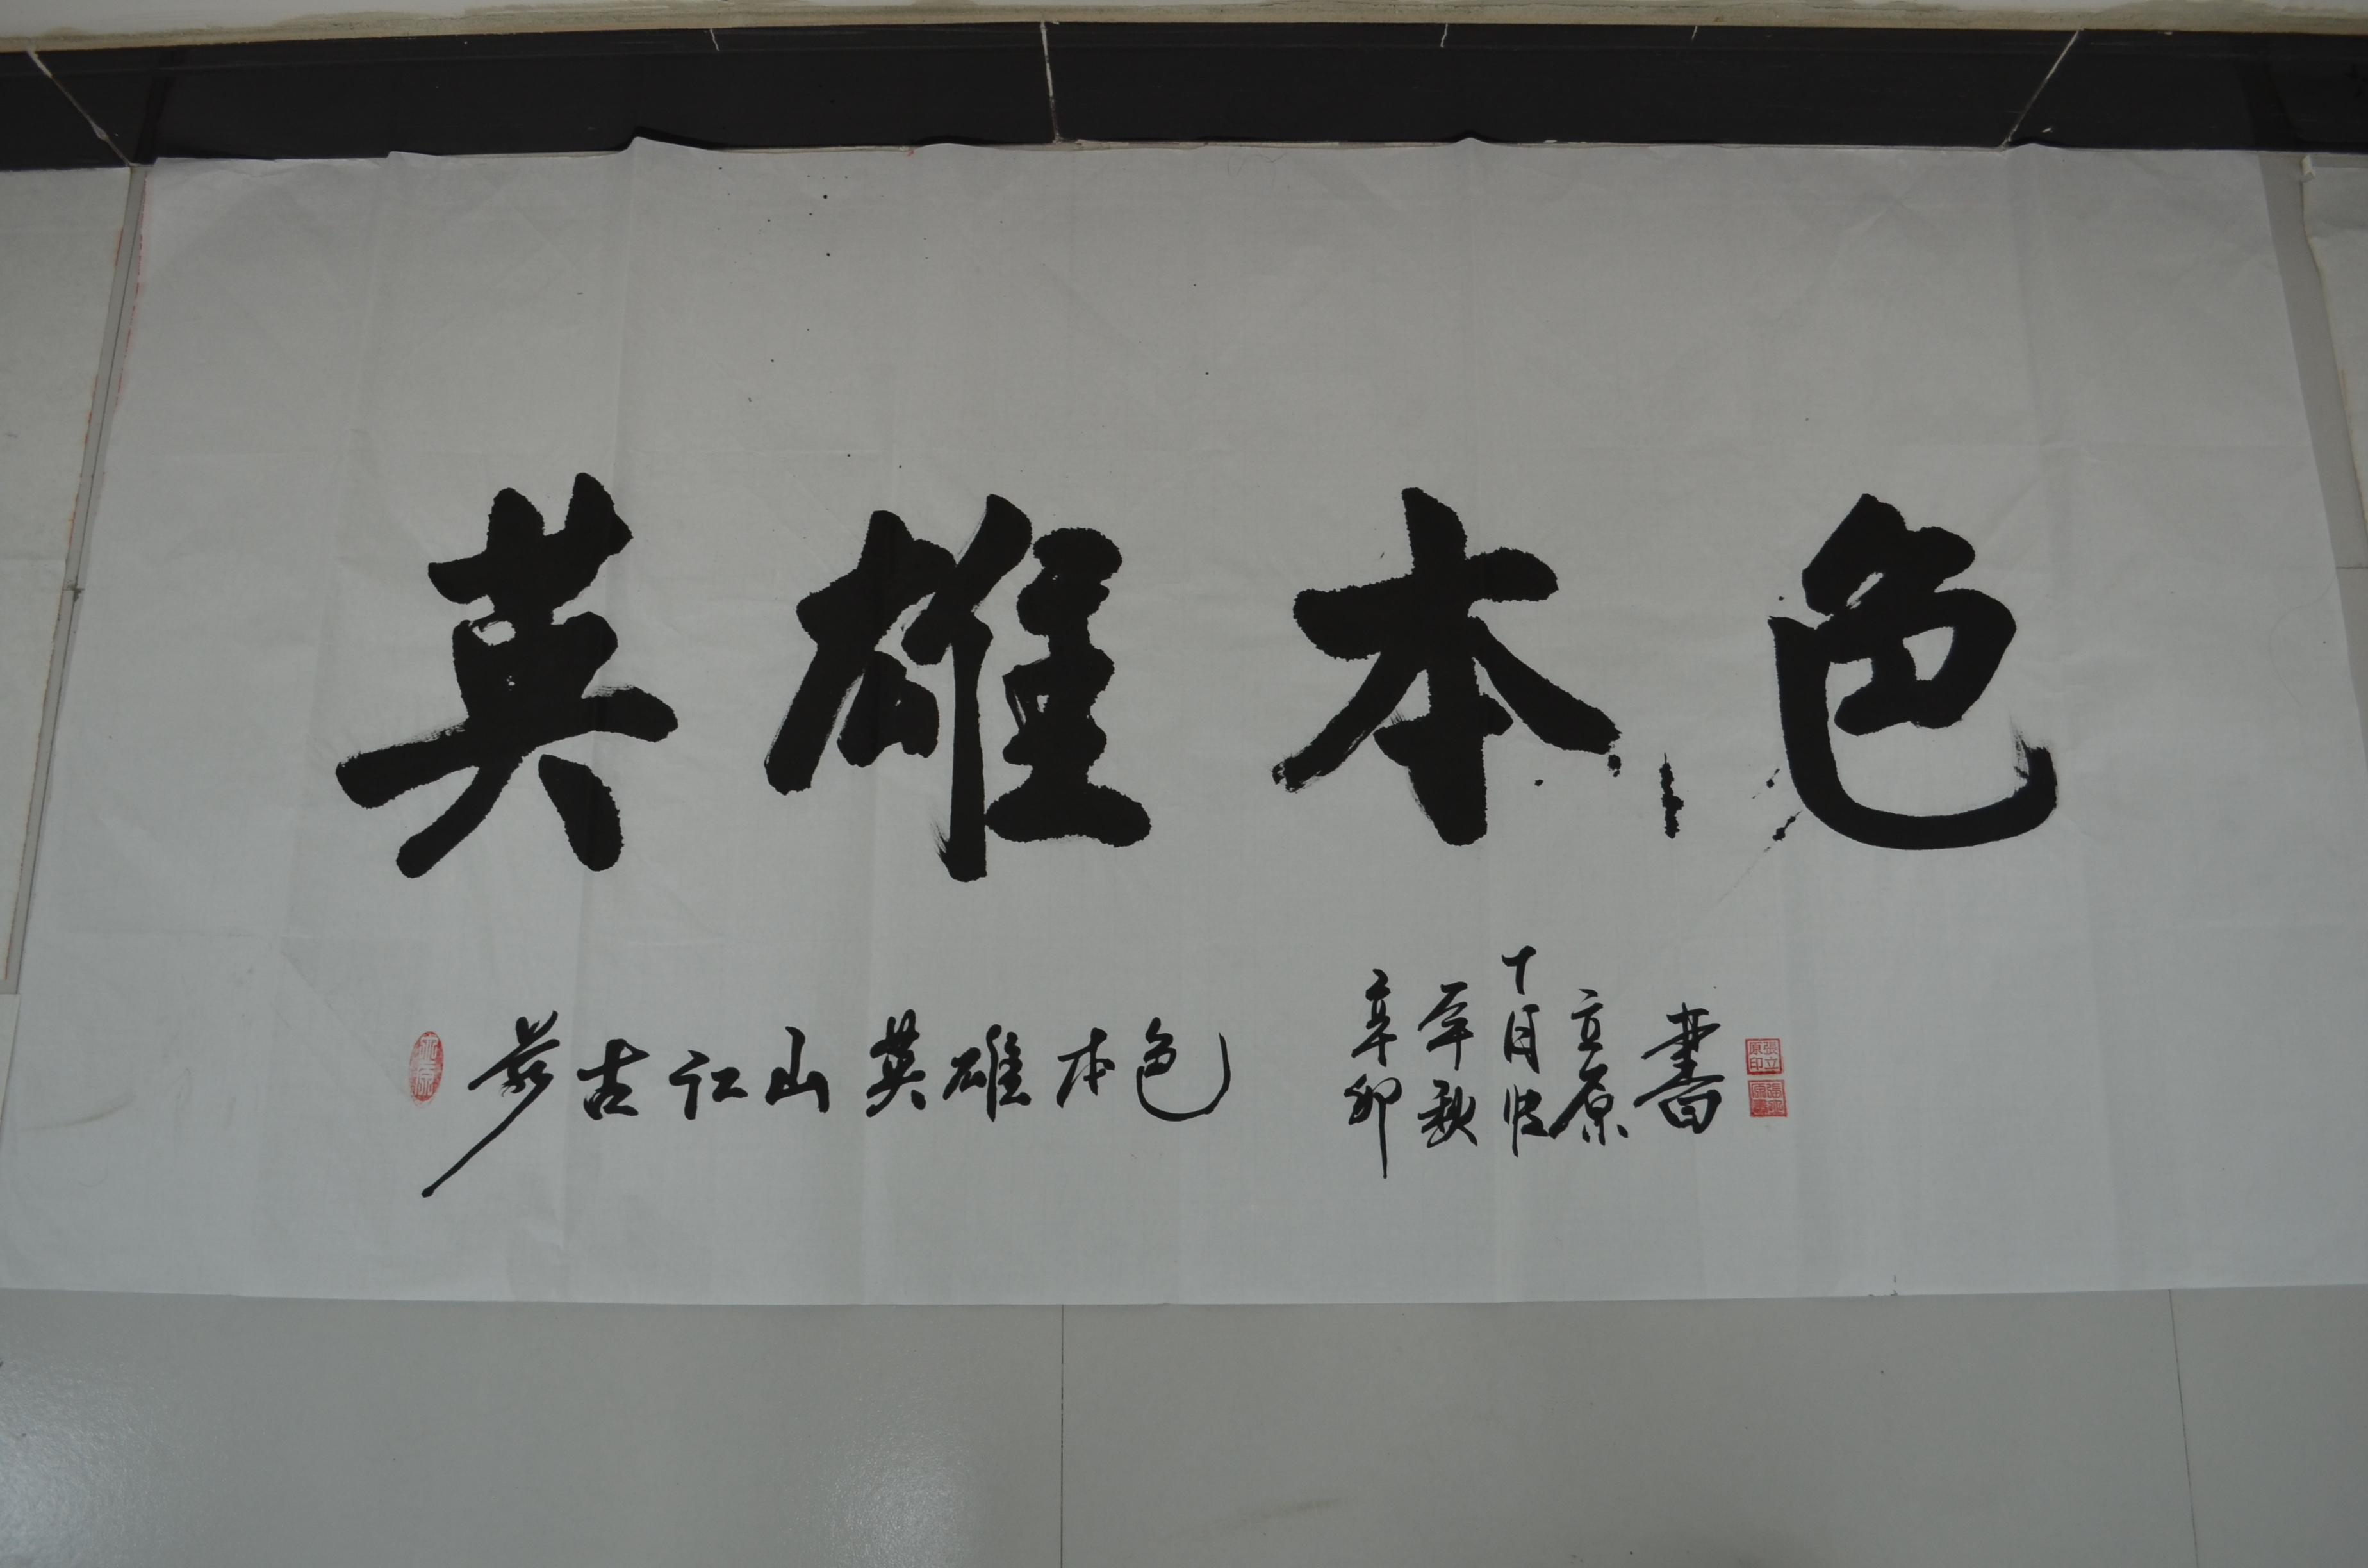 英雄本色
蒙古江山英雄本色
辛卯
年秋
十月
立原
書
張立原印